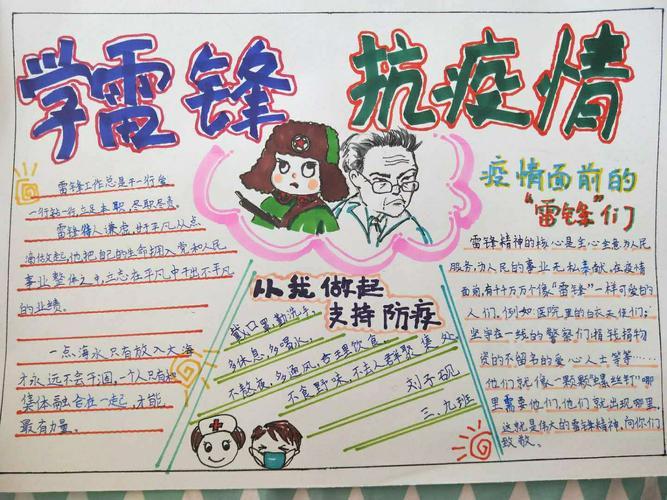 学雷锋 抗疫情
雷锋工作总是干一行爱
一行钻一行,立足本职,尽职尽责。
雷锋待人谦虚,於平凡从点
滴做起,他把自己的生命拥入党和人民
事业整体之中,立志在平凡中干出不平凡
的业绩。
一点海水只有放入大海
才永远不会干涸,一个人只有和
集体融合在一起,才能
最有力量。
从我做起
支持防疫
戴口罩,勤洗手,
多休息,多喝水,
不熬夜,多通风,合理饮食,
不食野味,不去人群聚集处
刘子砚
三、九班
疫情面前的
“雷锋”们
雷锋精神的核心是全心全意为人民
服务,为人民的事业无私奉献,在疫情
面前,有千千万万个像“雷锋”一样可爱的
人们,例如医院里的白衣天使们;
坚守在一线的警察们;捐钱捐物
资的不留名的爱心人士等等……
他们就像一颗颗“螺丝钉”哪
里需要他们,他们就出现哪里,
这就是伟大的雷锋精神,向你们
致敬。